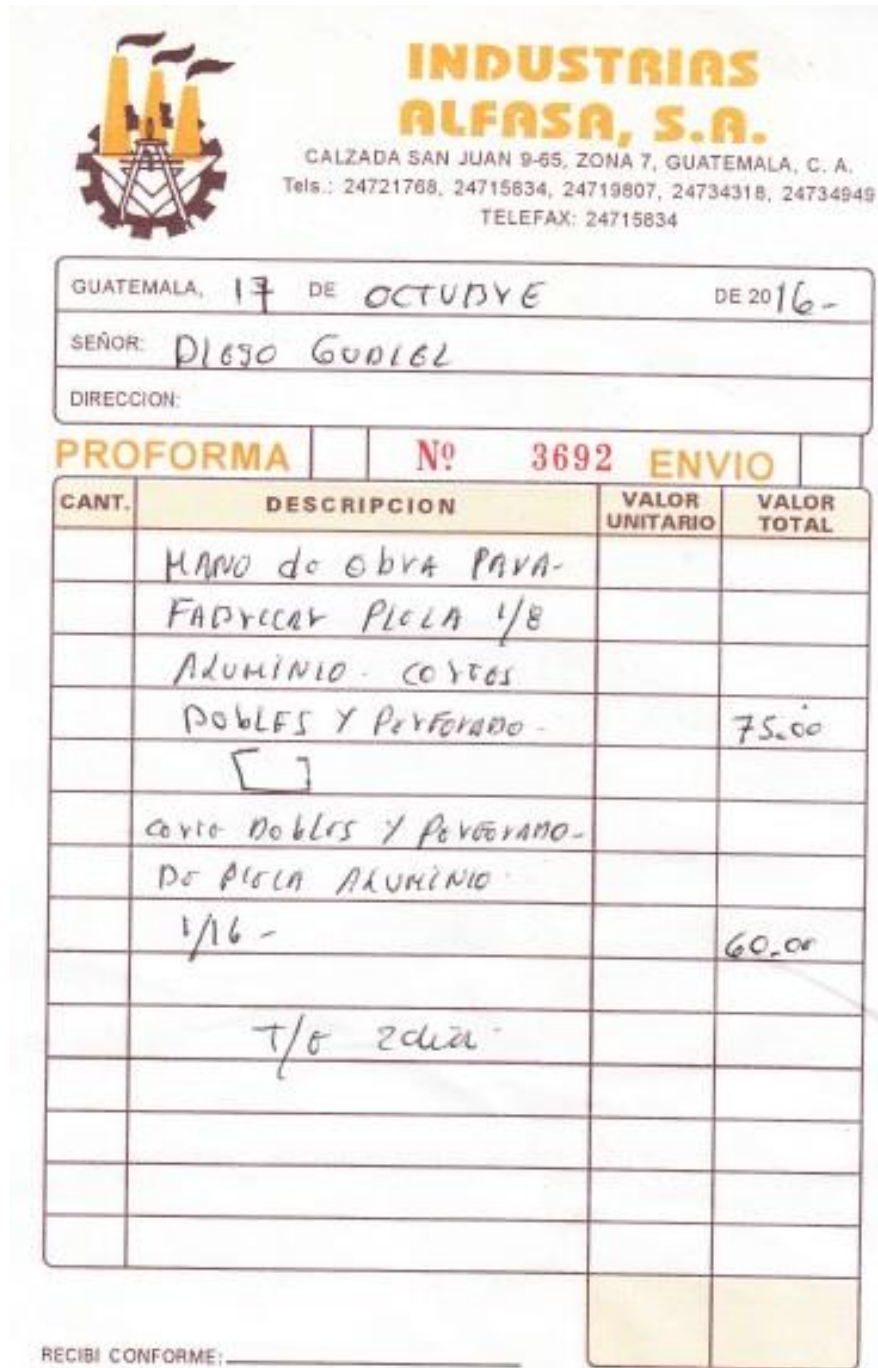 INDUSTRIAS
ALFASA, S.A.
CALZADA SAN JUAN 9-65, ZONA 7, GUATEMALA, C. A.
Tels.: 24721768, 24715834, 24719807, 24734318, 24734949
TELEFAX: 24715834
GUATEMALA, 17 DE OCTUBRE DE 2016-
SEÑOR: DIEGO GUDIEL
DIRECCION:
PROFORMA Nº 3692 ENVIO
CANT. DESCRIPCION VALOR UNITARIO VALOR TOTAL
MANO de ObrA PArA-
FABrICAr PIEZA 1/8
ALUMINIO. COrTES
DObLES Y PErFOrADO- 75.00
COrTE DObLES Y PErFOrADO-
DE PIEZA ALUMINIO
1/16- 60.00
T/E 2 dia
RECIBI CONFORME: